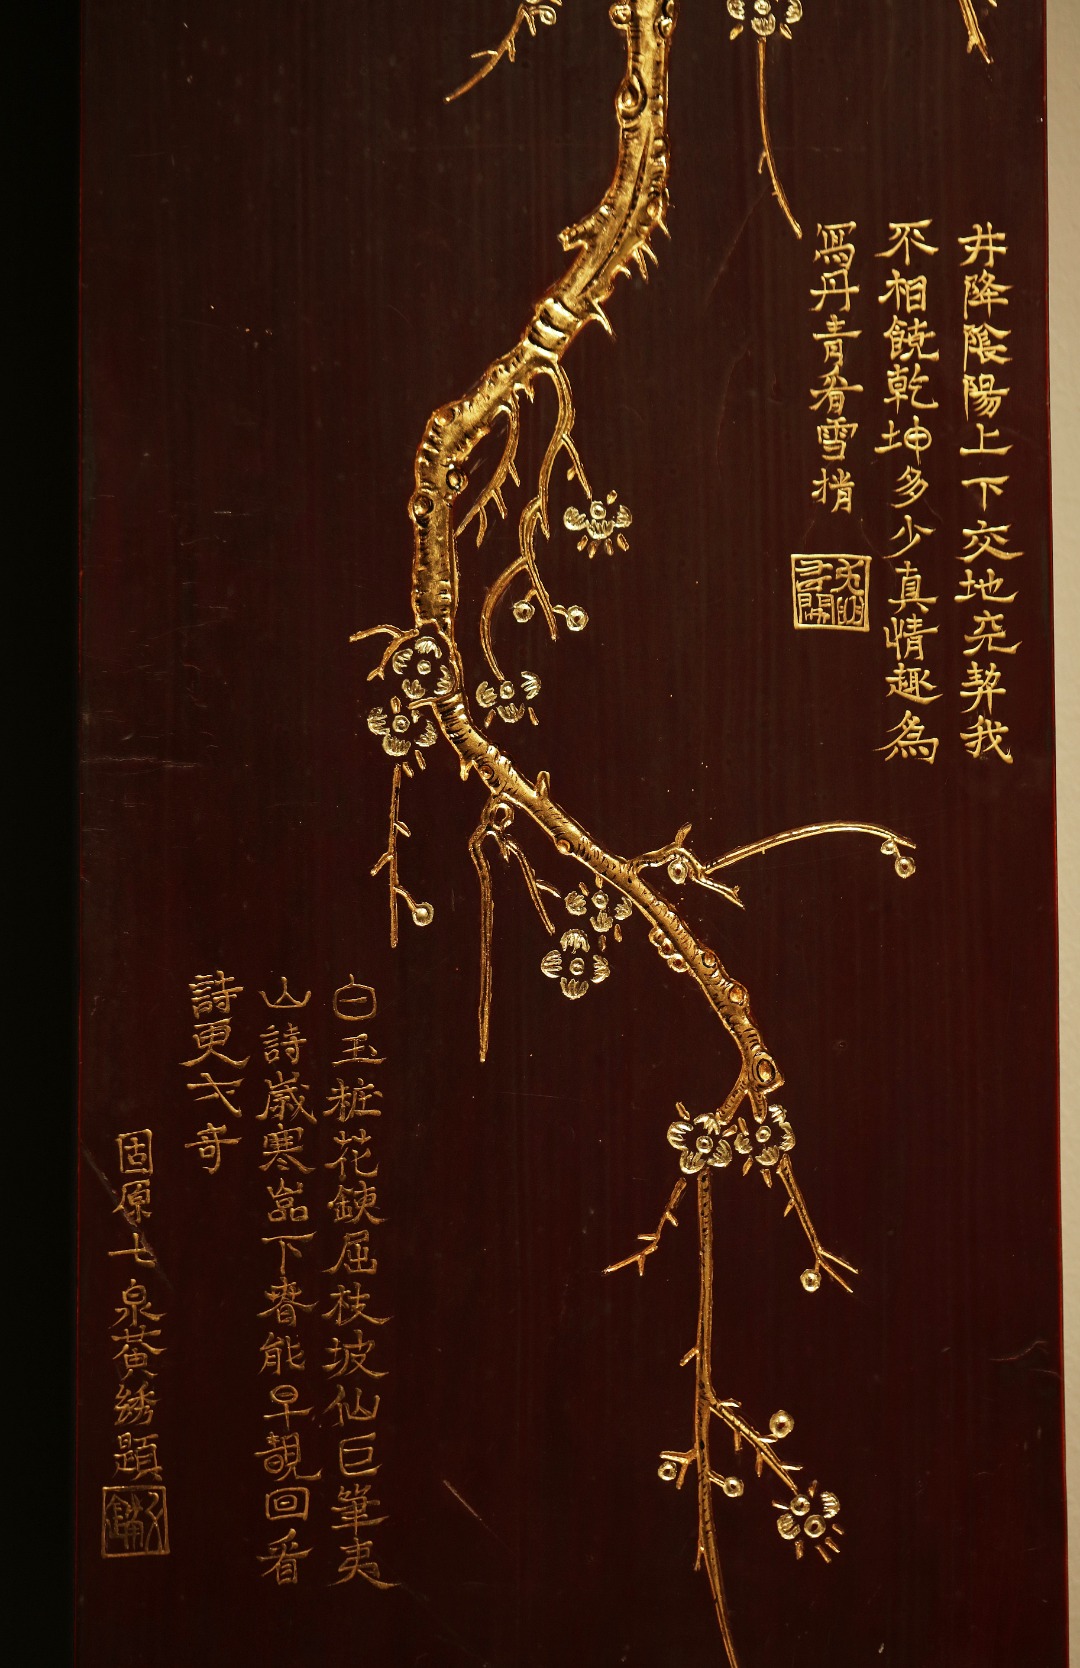 升降陰陽上下交地天契我
不相饒乾坤多少真情趣為
寫丹青看雪梢
白玉粧花鐵屈枝坡仙巨筆夷
山詩歲寒嵓下春能早靚回看
詩更戈奇
固原七泉黃綉題